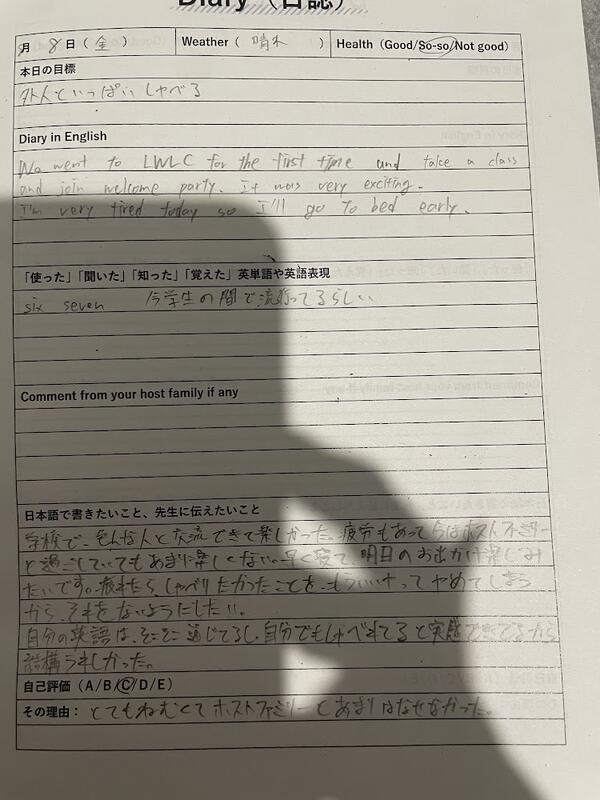 Diary（日誌）
月 8 日（金） Weather（ 晴れ ） Health（Good/So-so/Not good）
本日の目標
外人といっぱいしゃべる
Diary in English
We went to LWLC for the first time and take a class
and join welcome party. It was very exciting.
I'm very tired today so I'll go to bed early.
「使った」「聞いた」「知った」「覚えた」英単語や英語表現
six seven 今学生の間で流行ってるらしい
Comment from your host family if any
日本語で書きたいこと、先生に伝えたいこと
学校で、色んな人と交流できて楽しかった。疲労もあって今はホストファミリー
と過ごしていてもあまり楽しくない。早く寝て、明日のお出かけ楽しみ
たいです。疲れたら、しゃべりたかったことを、もういいやってやめてしまう
から、それをないようにしたい。
自分の英語は、そこそこ通じてるし、自分でもしゃべれてると実感できてるから
結構うれしかった。
自己評価（A/B/C/D/E）
その理由：とてもねむくてホストファミリーとあまりはなせなかった。